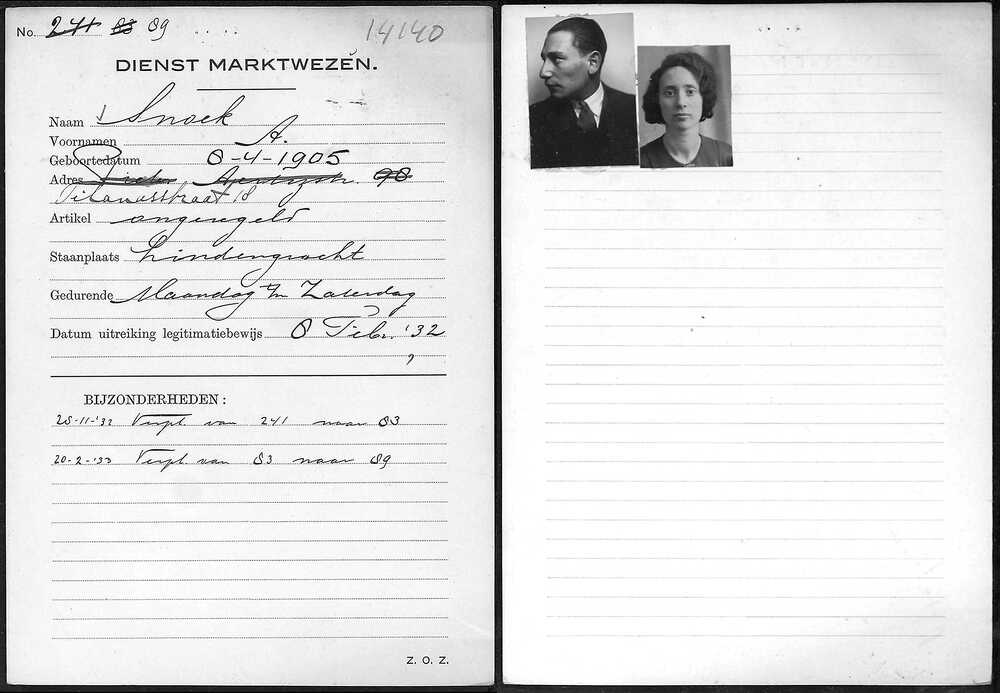 No. 241 83 89 14140
DIENST MARKTWEZEN.
Naam Snoek
Voornamen A.
Geboortedatum 8-4-1905
Adres 98
Titanusstraat 18
Artikel ongeregeld
Staanplaats Lindengracht
Gedurende Maandag t/m Zaterdag
Datum uitreiking legitimatiebewijs 8 Febr. '32
BIJZONDERHEDEN:
28-11-'32 Verpl. van 241 naar 83
20-2-'33 Verpl. van 83 naar 89
Z. O. Z.